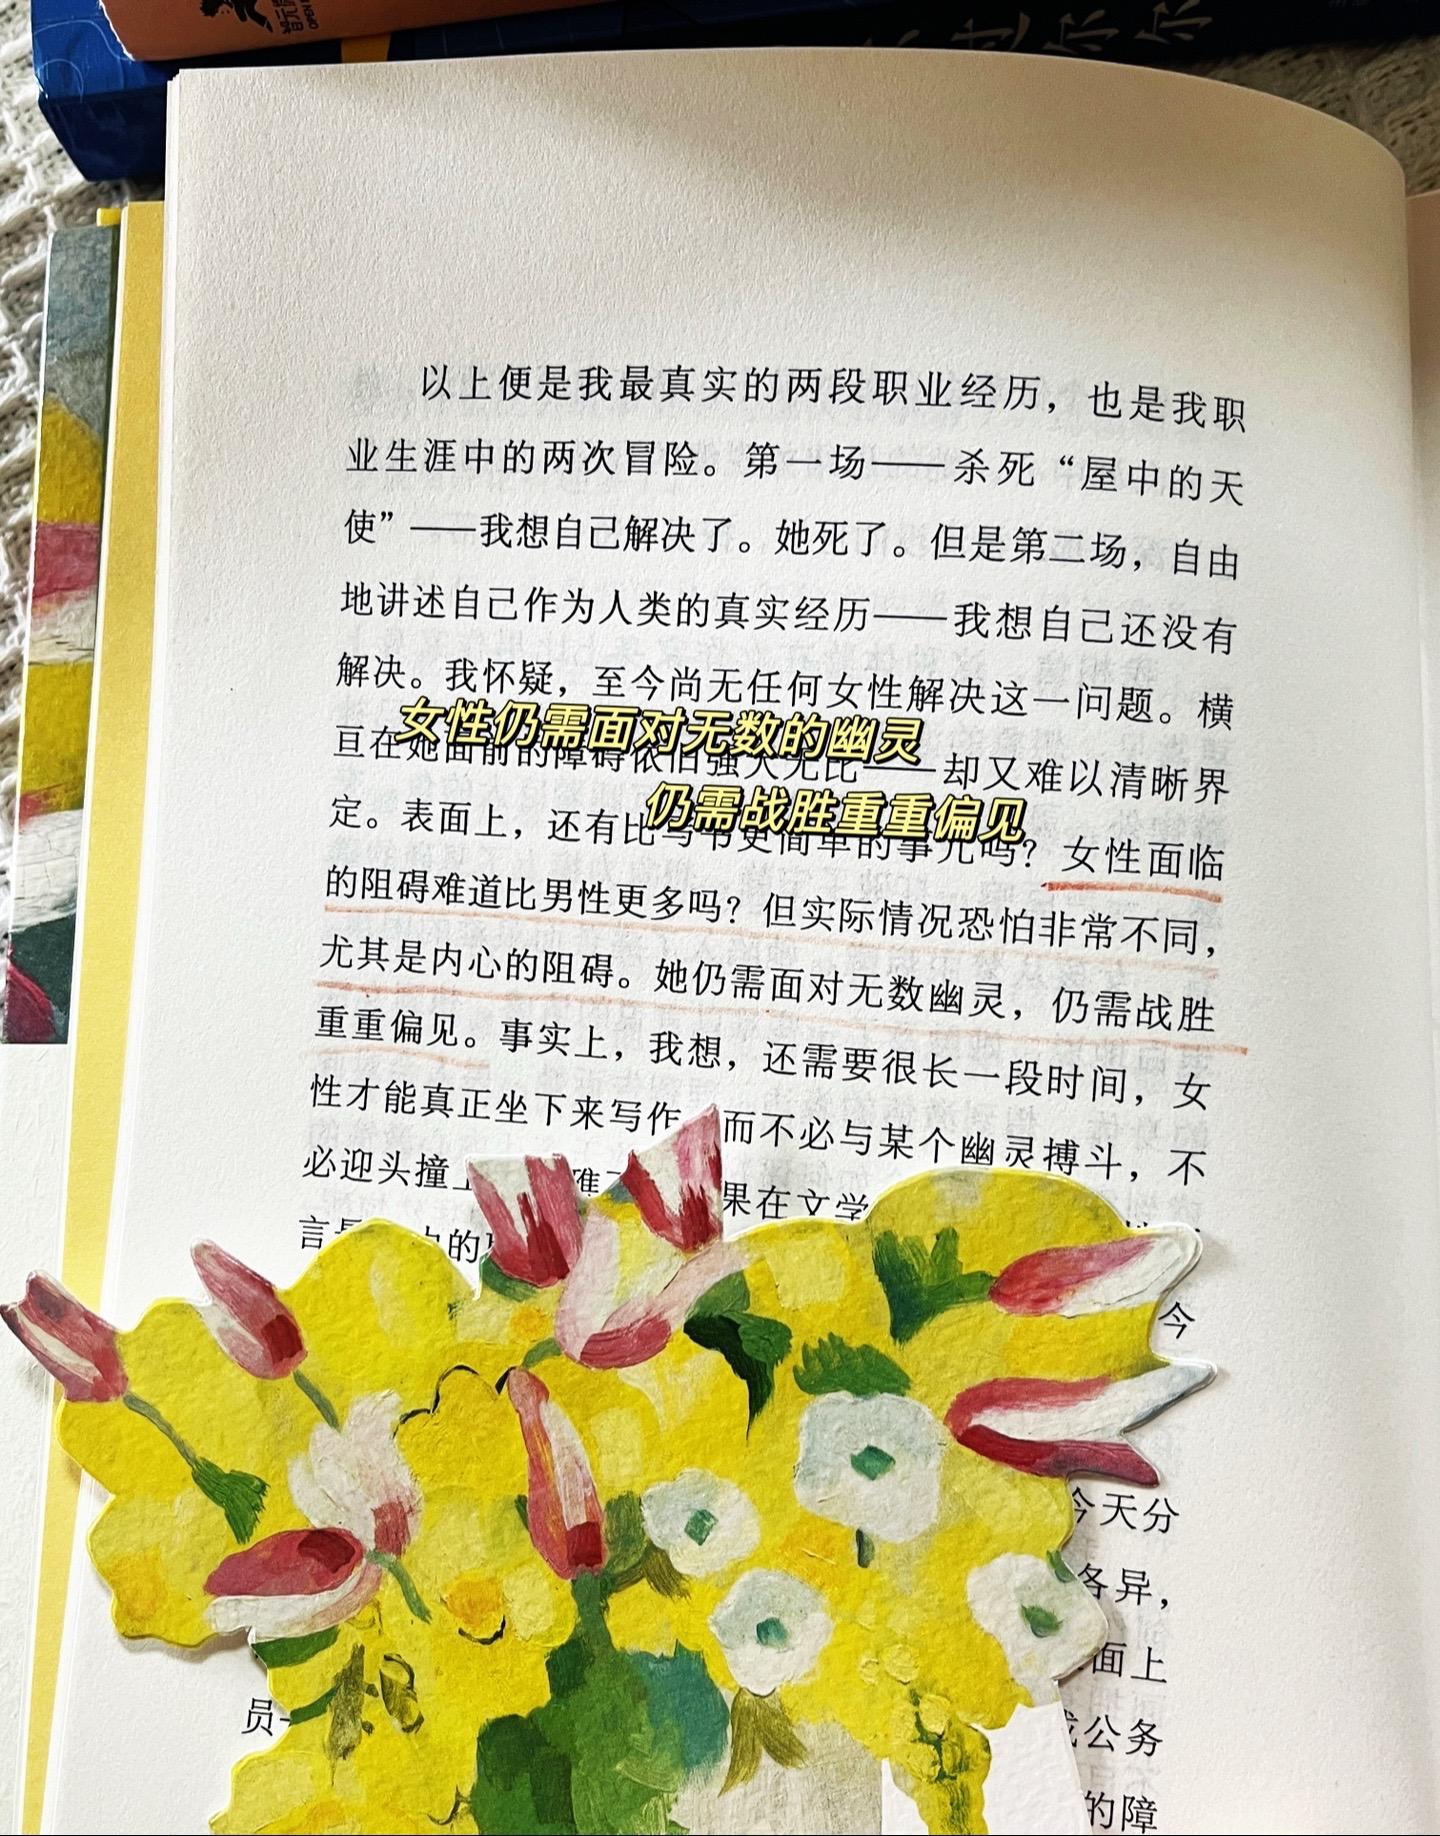 以上便是我最真实的两段职业经历，也是我职
业生涯中的两次冒险。第一场——杀死“屋中的天
使”——我想自己解决了。她死了。但是第二场，自由
地讲述自己作为人类的真实经历——我想自己还没有
解决。我怀疑，至今尚无任何女性解决这一问题。横
女性仍需面对无数的幽灵
亘在她面前的障碍依旧强大无比——却又难以清晰界
仍需战胜重重偏见
定。表面上，还有比写书更简单的事儿吗？女性面临
的阻碍难道比男性更多吗？但实际情况恐怕非常不同，
尤其是内心的阻碍。她仍需面对无数幽灵，仍需战胜
重重偏见。事实上，我想，还需要很长一段时间，女
性才能真正坐下来写作 而不必与某个幽灵搏斗，不
必迎头撞 果在文学
言 的
今
今天分
各异，
面上
员 公务
的障